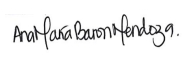 Ana María Barón Mendoza.